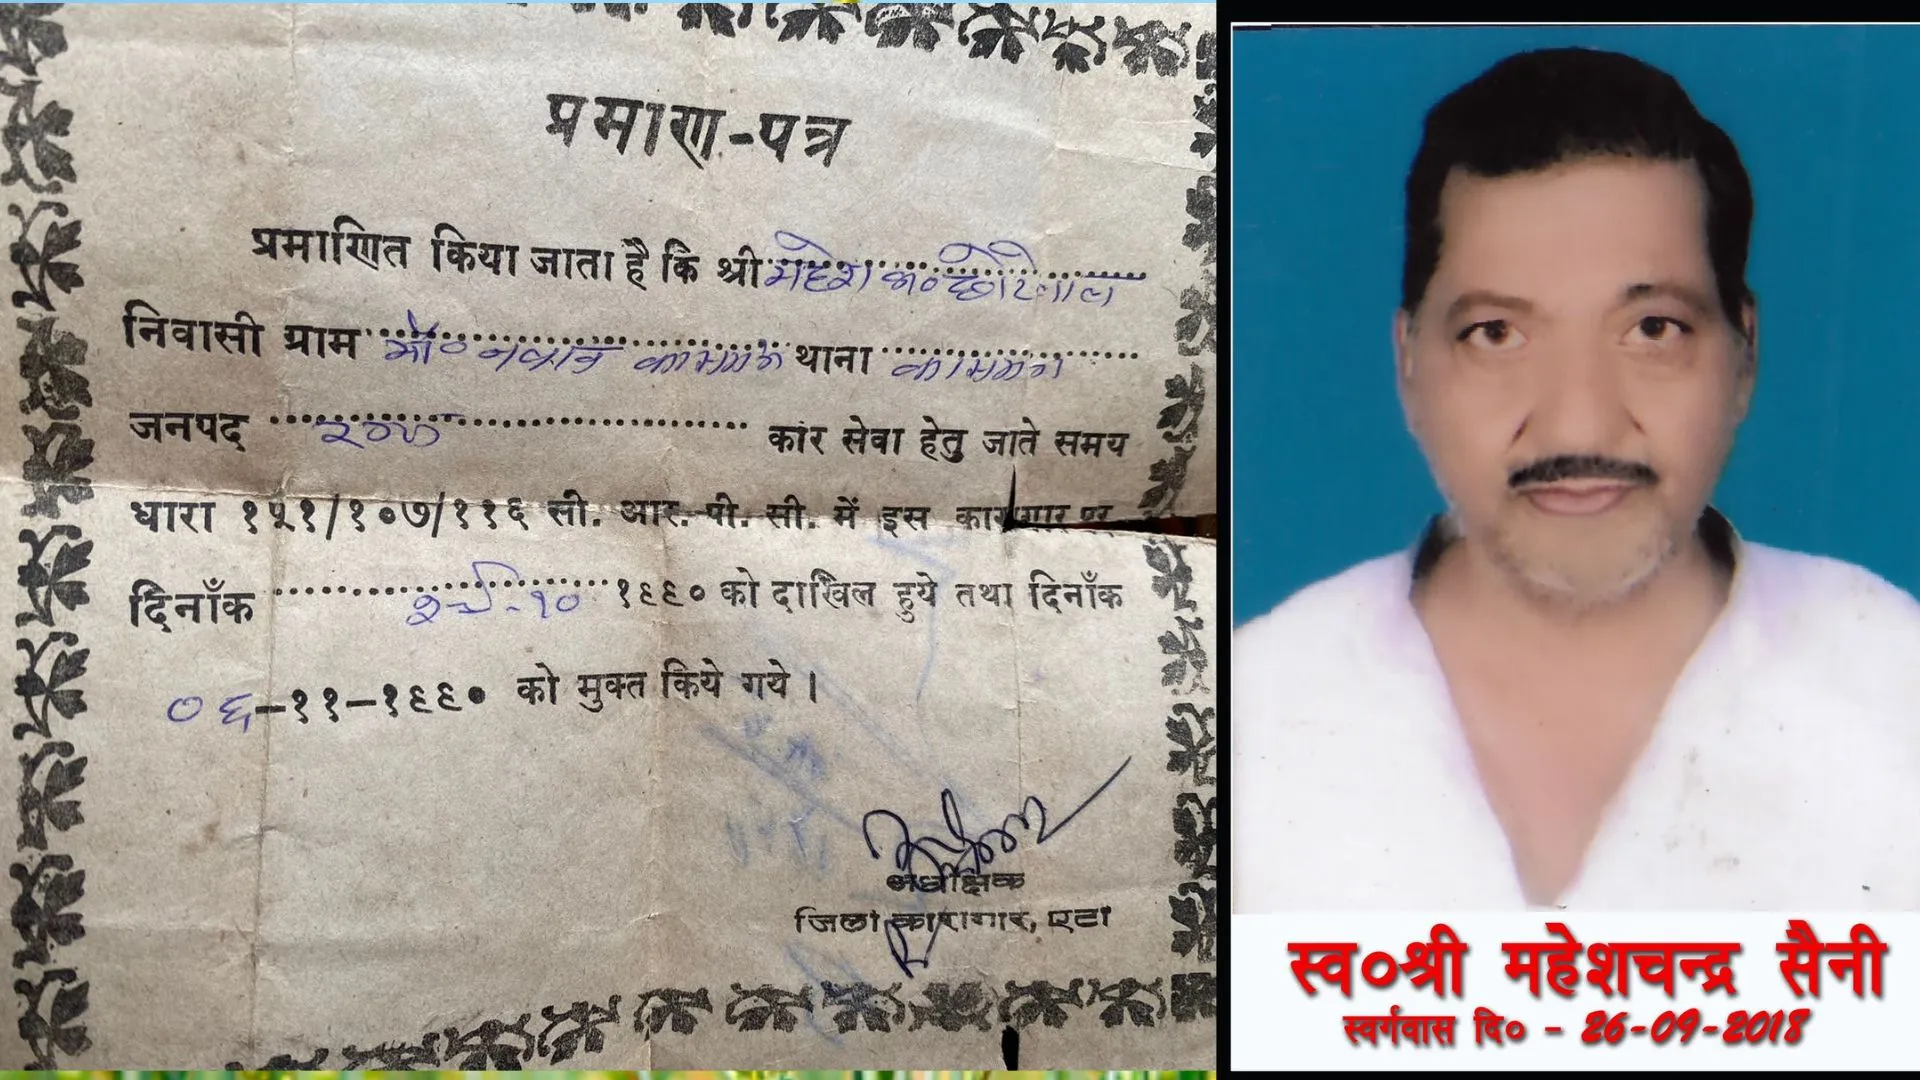 प्रमाण-पत्र
प्रमाणित किया जाता है कि श्री महेश
निवासी ग्राम मौ० नवाब कासगंज थाना कासगंज
जनपद एटा कार सेवा हेतु जाते समय
धारा १५१/१०७/११६ सी. आर. पी. सी. में इस कारागार पर
दिनाँक १९९० को दाखिल हुये तथा दिनाँक
०६-११-१९९० को मुक्त किये गये ।
अधीक्षक
जिला कारागार, एटा
स्व०श्री महेशचन्द्र सैनी
स्वर्गवास दि० - 26-09-2018